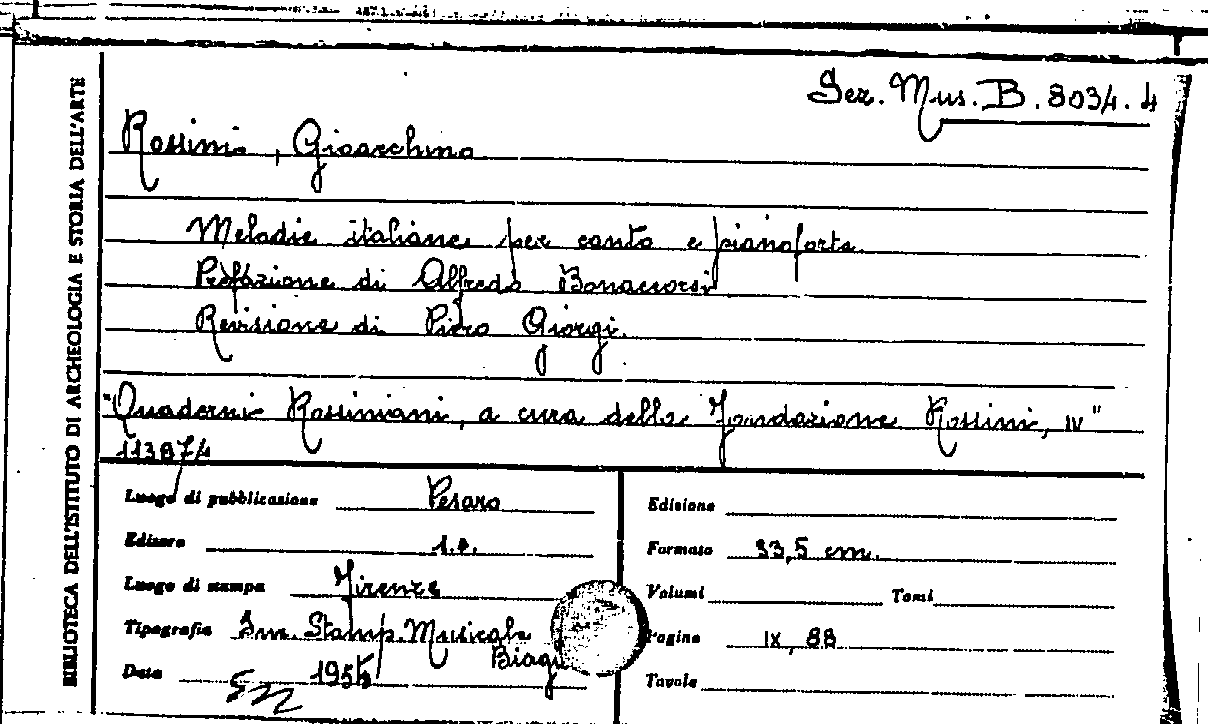 Sez. Mus. B. 8034. 4
Rossini, Gioacchino
Melodie italiane per canto e pianoforte.
Prefazione di Alfredo Bonaccorsi
Revisione di Piero Giorgi.
"Quaderni Rossiniani, a cura della Fondazione Rossini, IV"
113874
Luogo di pubblicazione Pesaro
Editore
Luogo di stampa Firenze
Tipografia Stamp. Musicale
Data 1955
Edizione
Formato 33,5 cm.
Volumi Tomi
Pagine IX, 88
Tavole
BIBLIOTECA DELL'ISTITUTO DI ARCHEOLOGIA E STORIA DELL'ARTE